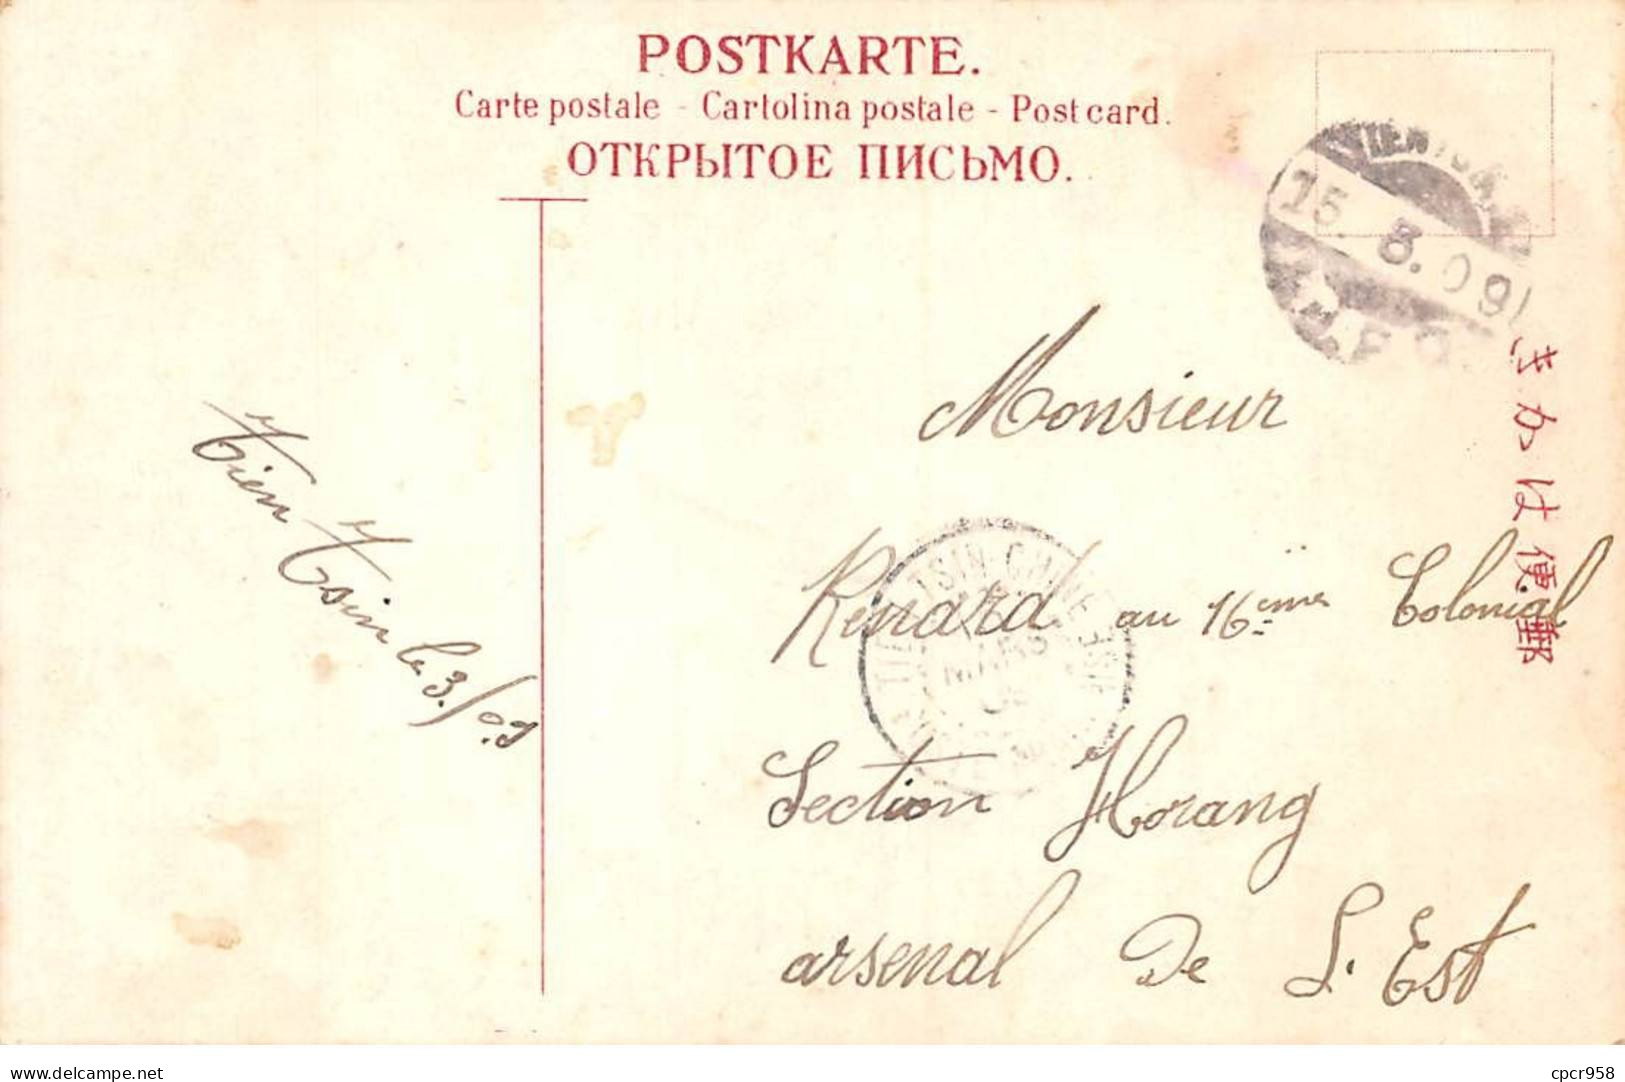 POSTKARTE.
Carte postale - Cartolina postale - Post card.
ОТКРЫТОЕ ПИСЬМО.
15. 3. 09
きかは便郵
Monsieur
Renard au 16ème Colonial
Section Horang
arsenal De L'Est
Tien Tsin le 3./09
TSIN-CHINE
MARS
delcampe.net
cpcr958